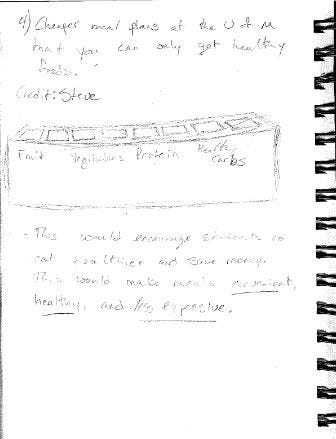 4) Cheaper meal plans at the U of M
that you can only get healthy
foods.
Credit: Steve
Fruit Vegetables Protein Healthy
Carbs
- This would encourage students to
eat healthier and save money.
This would make meals convenient,
healthy, and less expensive.